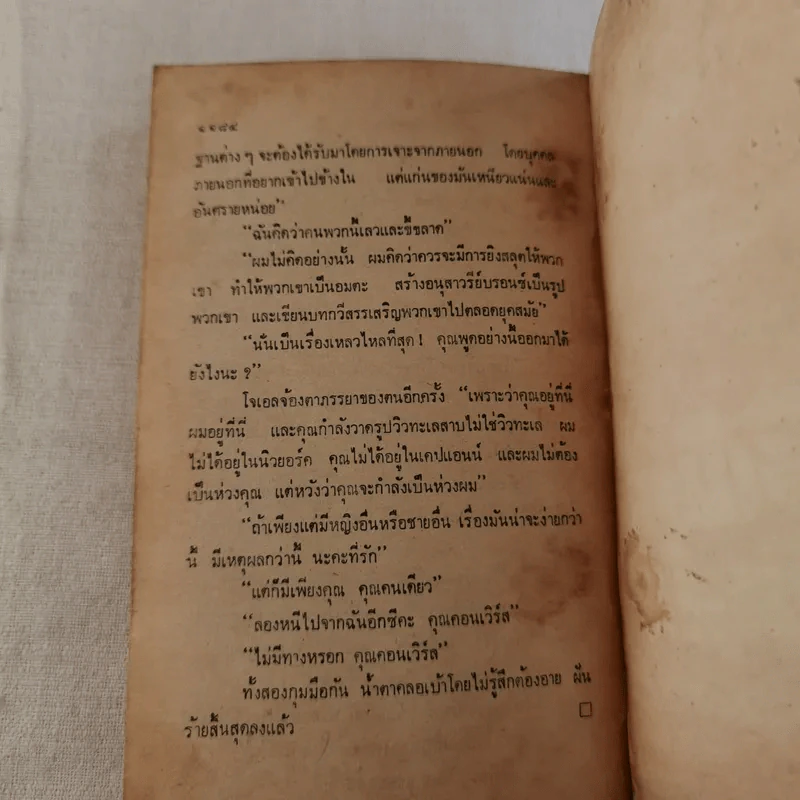 ๑๑๘๔
ฐานต่าง ๆ จะต้องได้รับมาโดยการเจาะจากภายนอก โดยบุคคล
ภายนอกที่อยากเข้าไปข้างใน แต่แก่นของมันเหนียวแน่นและ
อันตรายหน่อย”
“ฉันคิดว่าคนพวกนี้เลวและขี้ขลาด”
“ผมไม่คิดอย่างนั้น ผมคิดว่าควรจะมีการยิงสลุตให้พวก
เขา ทำให้พวกเขาเป็นอมตะ สร้างอนุสาวรีย์บรอนซ์เป็นรูป
พวกเขา และเขียนบทกวีสรรเสริญพวกเขาไปตลอดยุคสมัย”
“นั่นเป็นเรื่องเหลวไหลที่สุด ! คุณพูดอย่างนี้ออกมาได้
ยังไงนะ ?”
โจเอลจ้องตาภรรยาของตนอีกครั้ง “เพราะว่าคุณอยู่ที่นี่
ผมอยู่ที่นี่ และคุณกำลังวาดรูปวิวทะเลสาบไม่ใช่วิวทะเล ผม
ไม่ได้อยู่ในนิวยอร์ค คุณไม่ได้อยู่ในเคปแอนน์ และผมไม่ต้อง
เป็นห่วงคุณ แต่หวังว่าคุณจะกำลังเป็นห่วงผม”
“ถ้าเพียงแต่มีหญิงอื่นหรือชายอื่น เรื่องมันน่าจะง่ายกว่า
นี้ มีเหตุผลกว่านี้ นะคะที่รัก”
“แต่ก็มีเพียงคุณ คุณคนเดียว”
“ลองหนีไปจากฉันอีกซีคะ คุณคอนเวิร์ส”
“ไม่มีทางหรอก คุณคอนเวิร์ส”
ทั้งสองกุมมือกัน น้ำตาคลอเบ้าโดยไม่รู้สึกต้องอาย ฝัน
ร้ายสิ้นสุดลงแล้ว